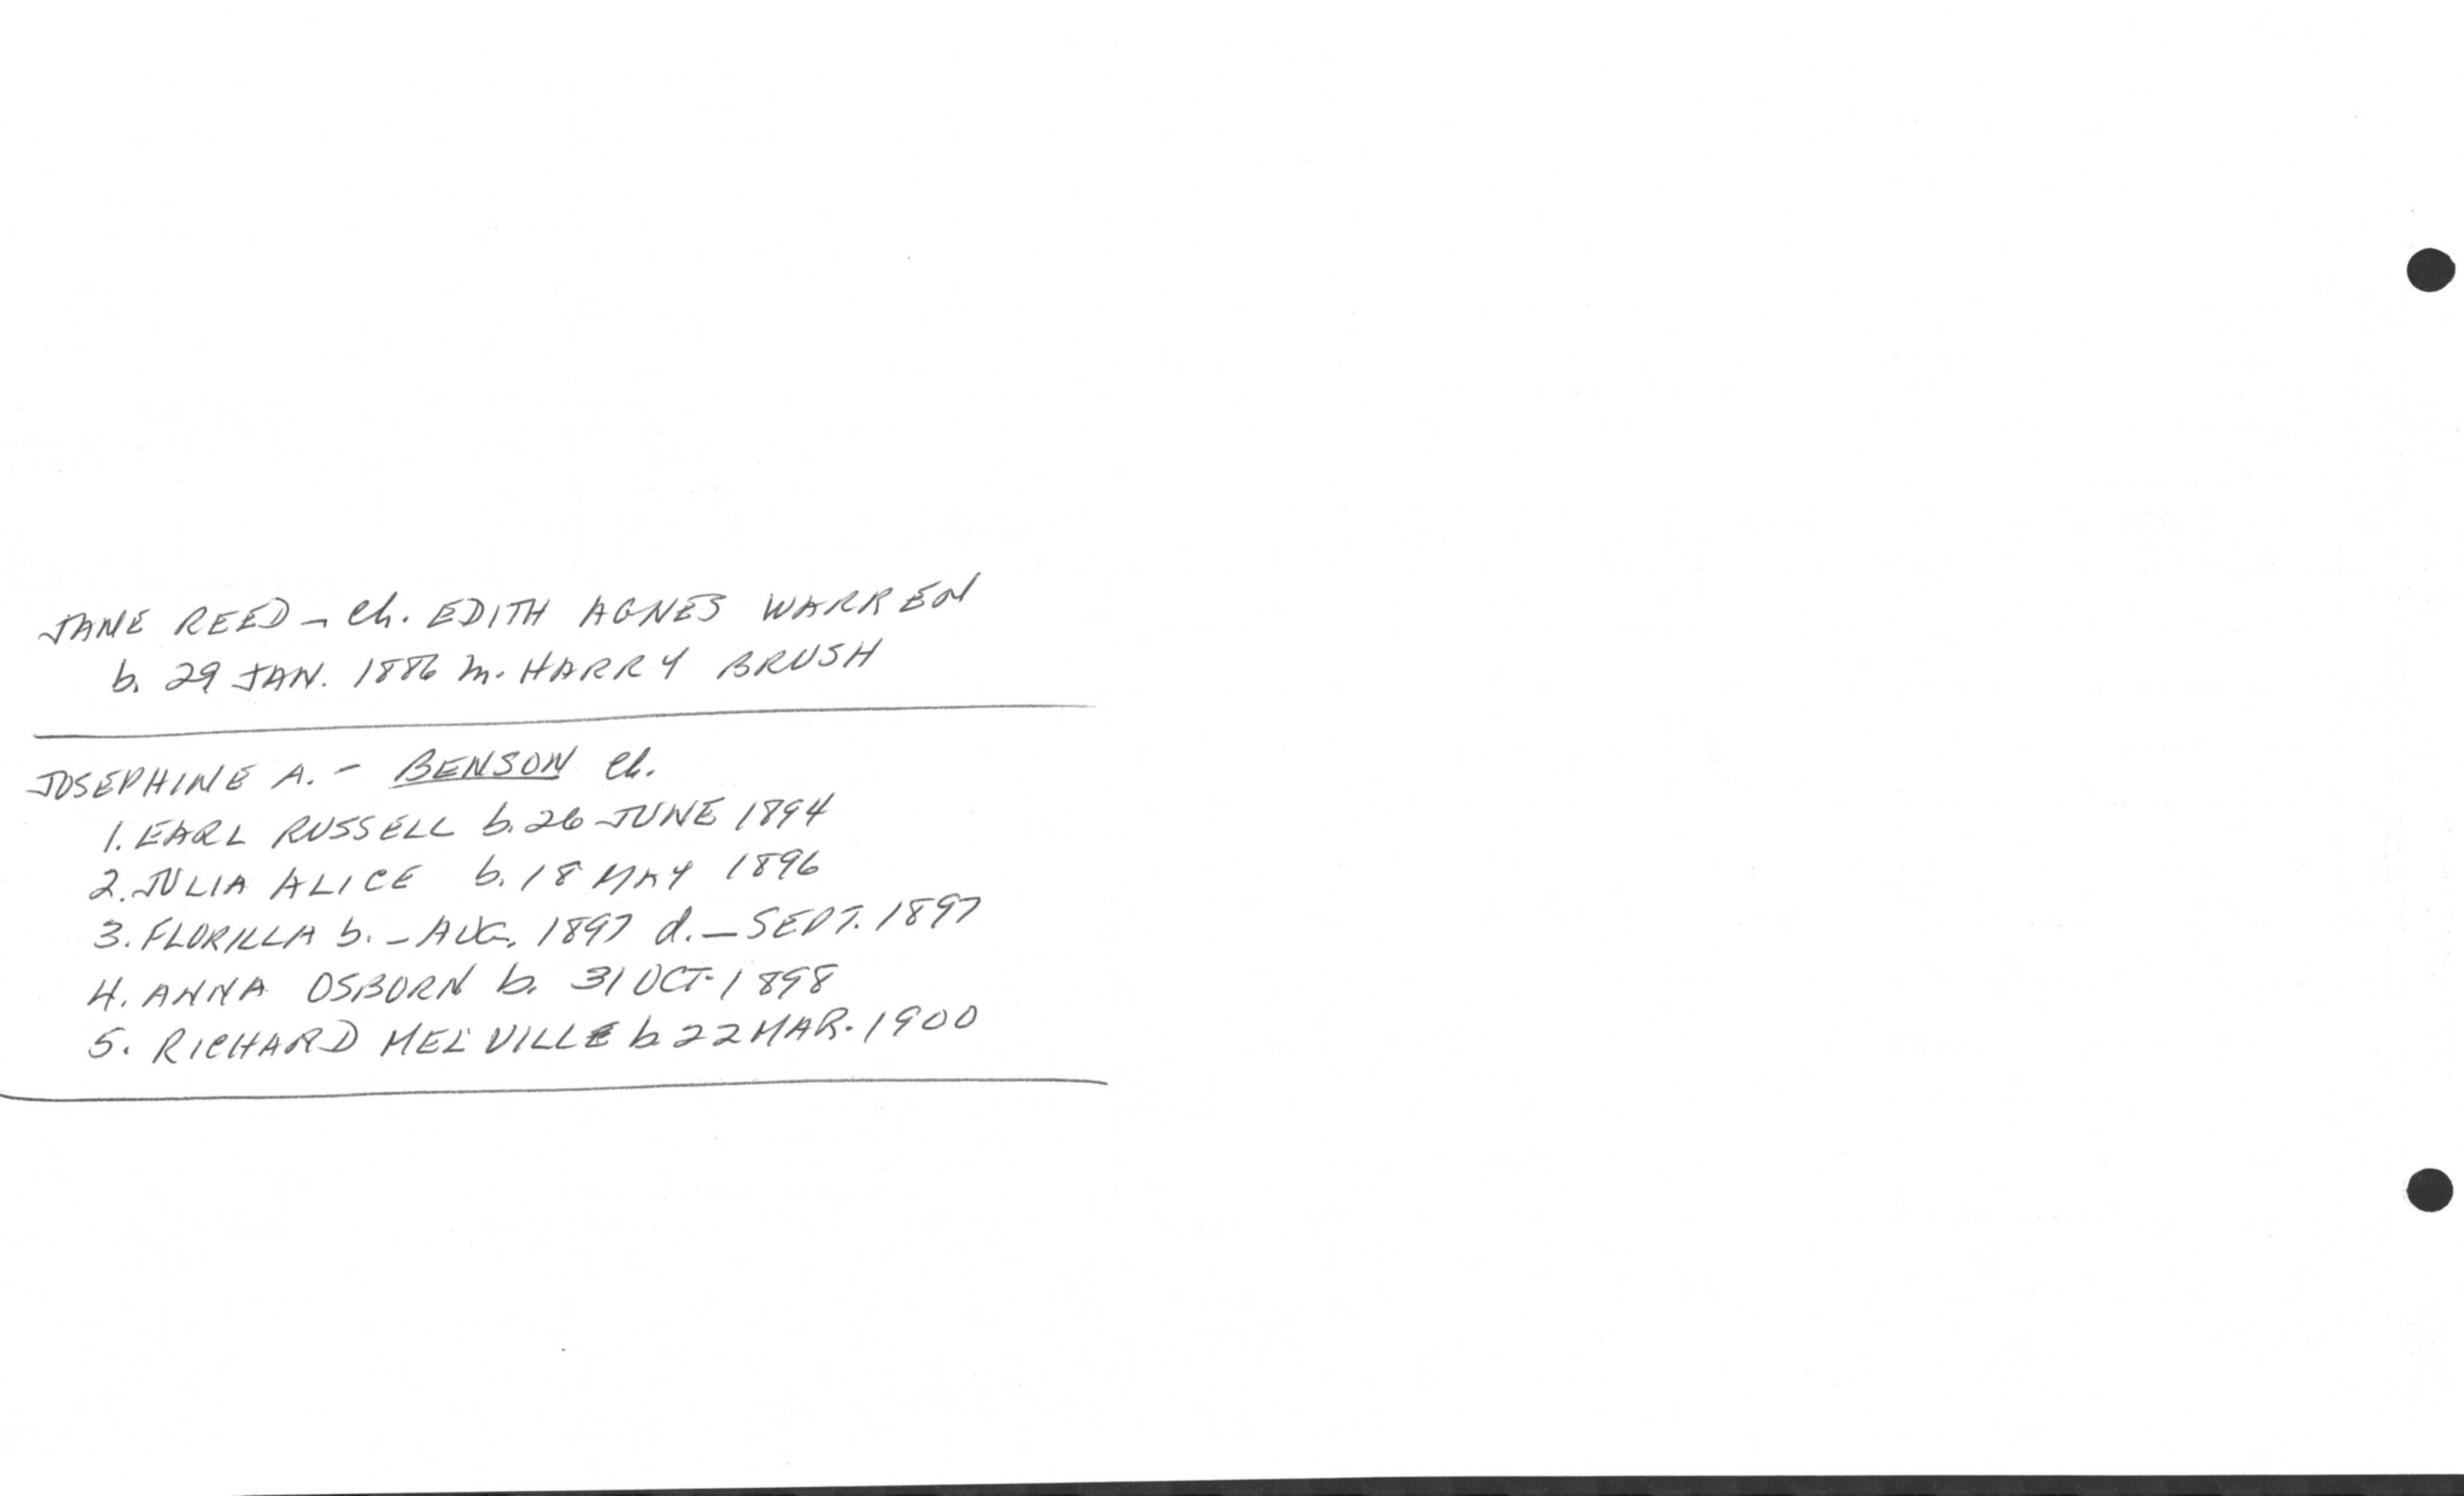 JANE REED - Ch. EDITH AGNES WARREN
b. 29 JAN. 1886 m. HARRY BRUSH
JOSEPHINE A. - BENSON Ch.
1. EARL RUSSELL b. 26 JUNE 1894
2. JULIA ALICE b. 18 MAY 1896
3. FLORILLA b. - AUG. 1897 d. - SEPT. 1897
4. ANNA OSBORN b. 31 OCT. 1898
5. RICHARD MELVILLE b 22 MAR. 1900